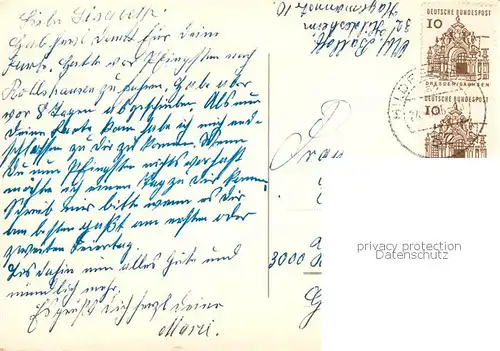 Liebe Lisabeth.
Hab herzl. Dank für Deine
Karte. Hatte vor Pfingsten nach
zu fahren. Habe aber
vor 8 Tagen abgeschrieben. Als nun
Deine Karte kam habe ich mich ent-
schlossen zu Dir zu kommen. Wenn
Du nun Pfingsten nichts vorhast
möchte ich einen Tag zu Dir kommen.
Schreib mir bitte wenn es Dir
am besten paßt am ersten oder
zweiten Feiertag.
Bis dahin nun alles Gute und
mündlich mehr.
Es grüßt Dich herzl. Deine
Marri.
32 Hildesheim
10
DEUTSCHE BUNDESPOST
10
DRESDEN
DEUTSCHE BUNDESPOST
10
HILDE
Frau
3000
privacy protection
Datenschutz